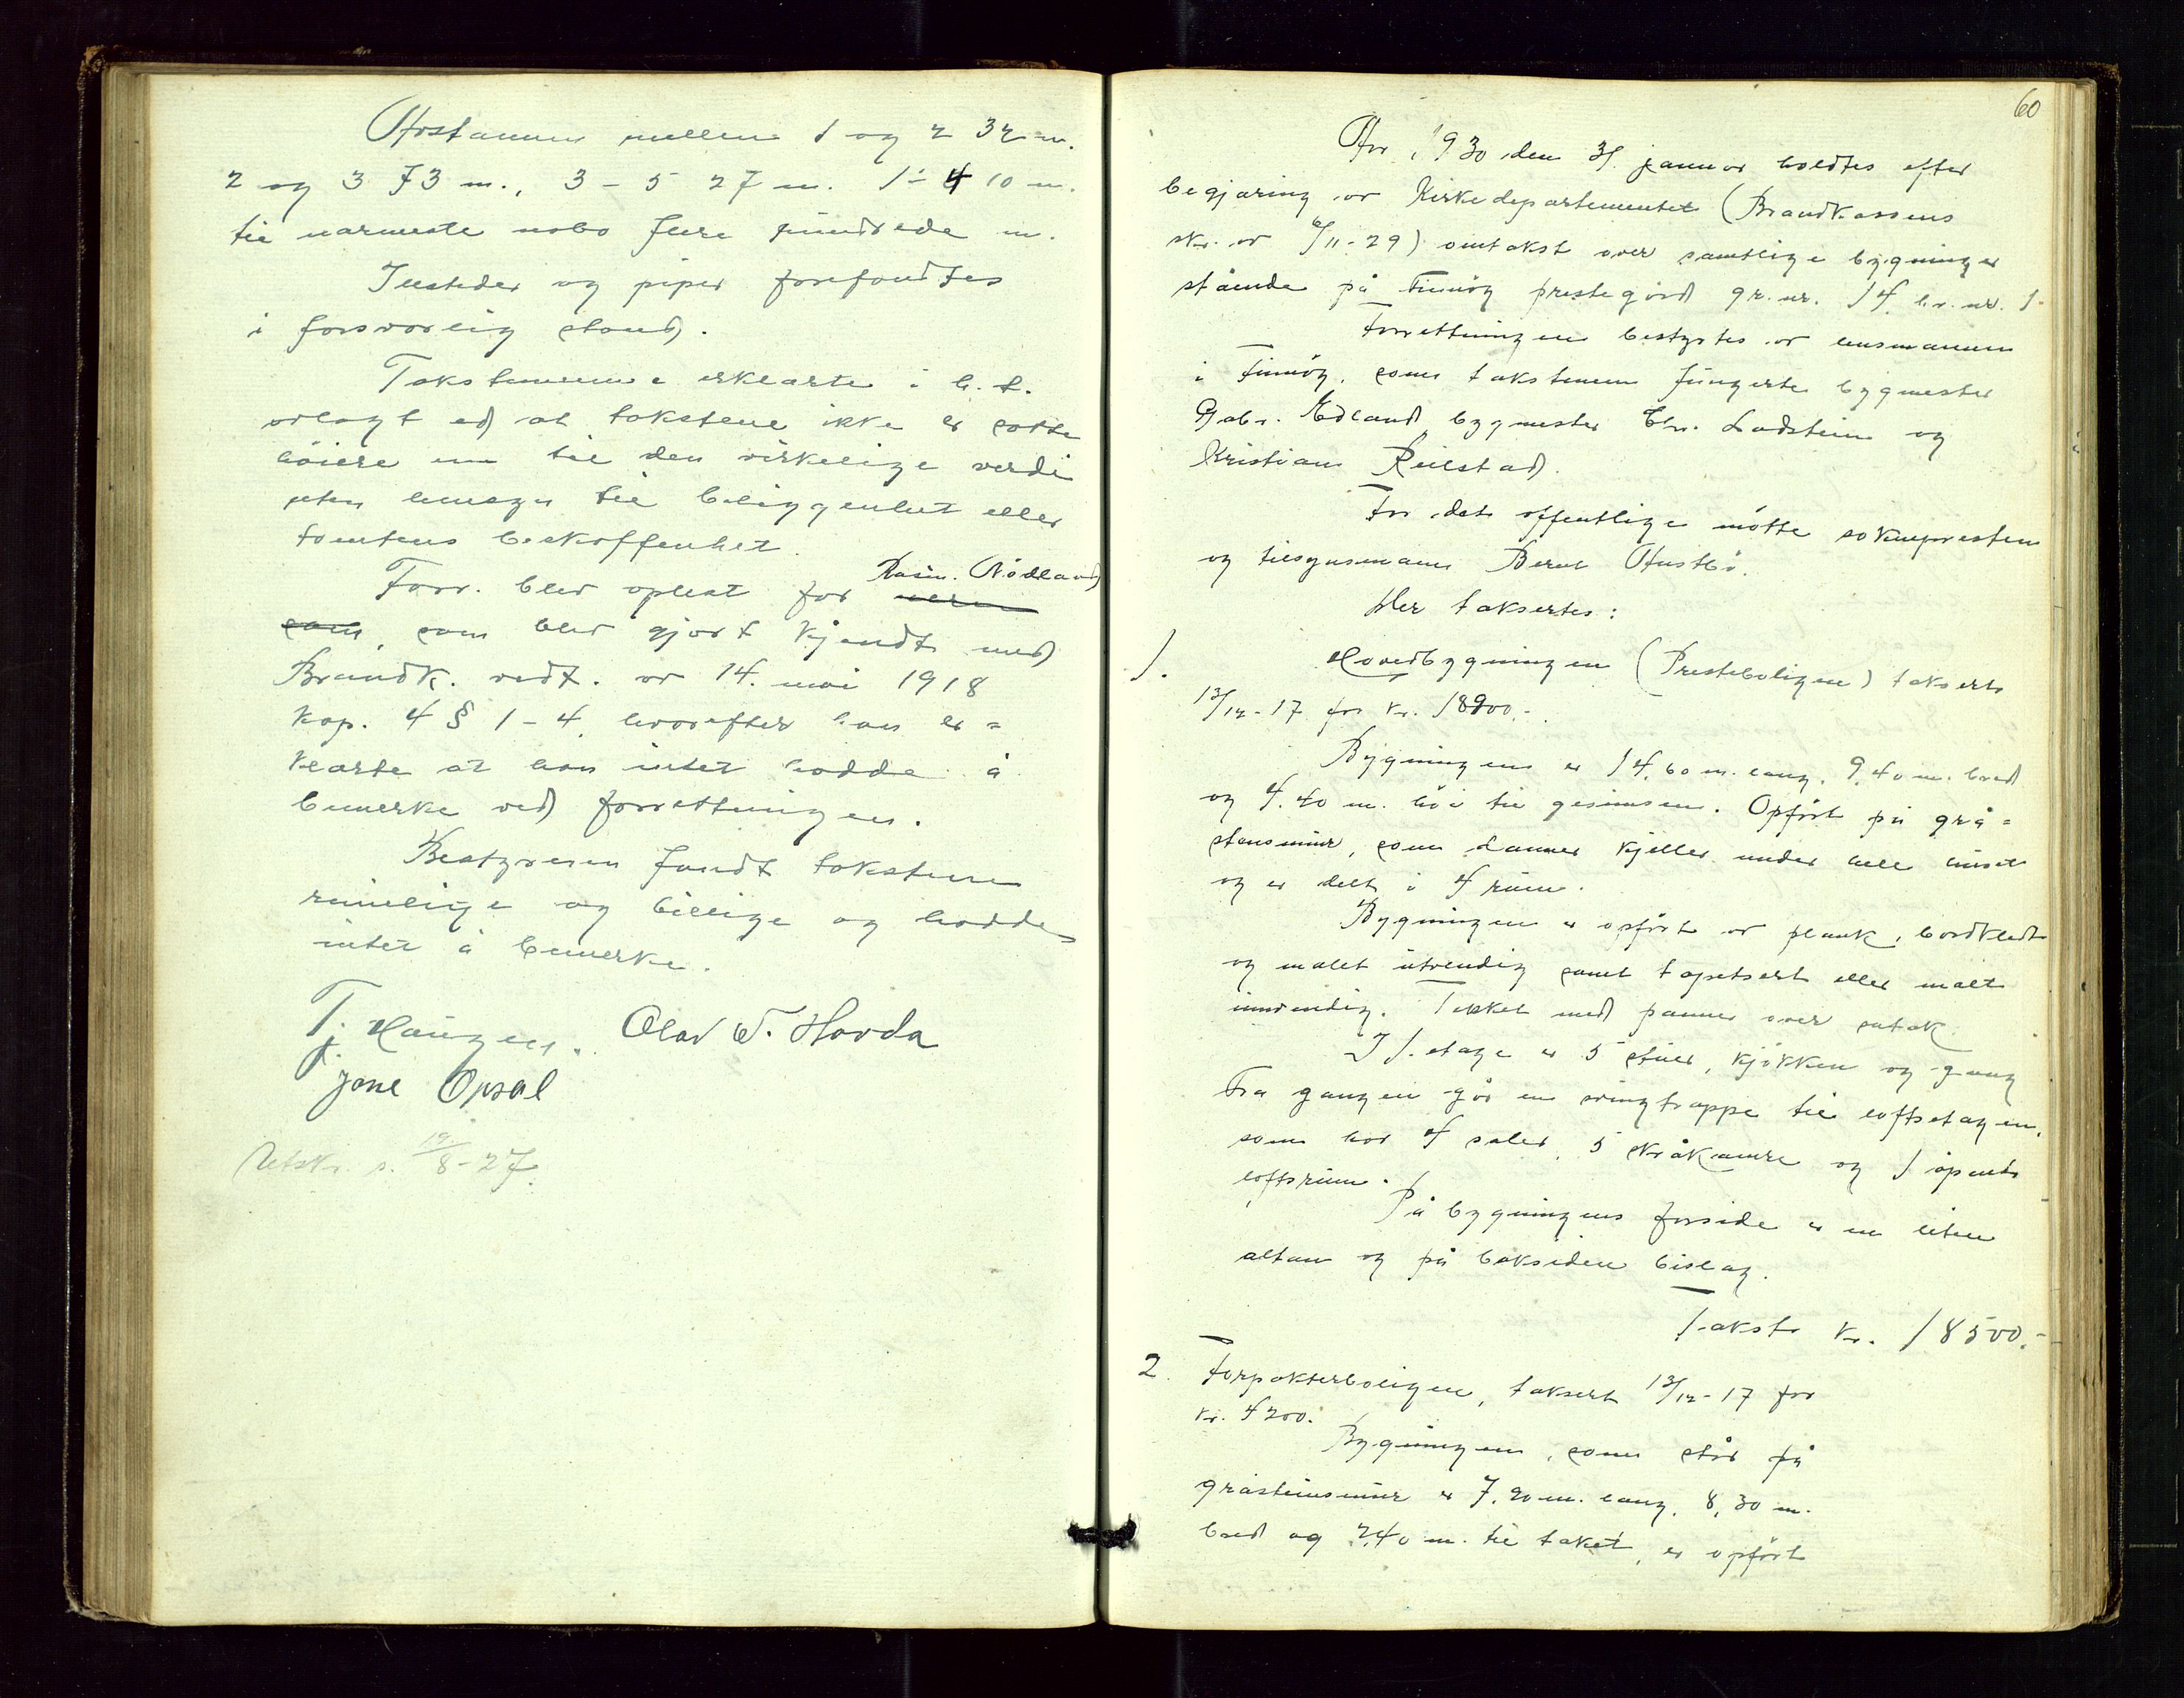 Avstannen mellem 1 og 2 32 m.
2 og 3 73 m., 3 - 5 27 m. 1 - 4 10 m.
til nærmeste nabo flere hundrede m.
Ildsteder og piper forefandtes
i forsvarlig stand.
Takstmennene erklærte i h. t.
avlagt ed at takstene ikke er satte
høiere enn til den virkelige verdi
uten hensyn til beliggenhet eller
tomtens beskaffenhet.
Rasm. Nødland
Forr. blev oplest for
som, som blev gjort kjendt med
Brandk. vedt. av 14. mai 1918
kap. 4 § 1 - 4, hvorefter han er=
klærte at han intet hadde å
bemerke ved forretningen.
Bestyreren fandt takstene
rimelige og billige og hadde
intet å bemerke.
Tj. Haugen. Olav T. Hovda
Jone Opsal
Utskr. s. 19/8-27.
60
År 1930 den 31. januar holdtes efter
begjæring av Kirkedepartementet (Brandkassens
skr. av 6/11-29) omtakst over samtlige bygninger
stående på Finnøy prestegård gr.nr. 14 br.nr. 1.
Forretningen bestyrtes av lensmannen
i Finnøy, som takstmenn fungerte bygmester
Gabr. Edland, bygmester Chr. Ladstein og
Kristian Reilstad.
For det offentlige møtte soknepresten
og tilsynsmann Bernt Austbø.
Her taksertes:
1. Hovedbygningen (Presteboligen) taksert
13/12-17 for kr. 18900.-
Bygningen er 14,60 m. lang, 9,40 m. bred
og 4.40 m. høi til gesimsen. Opført på grå=
stensmur, som danner kjeller under hele huset
og er delt i 4 rum.
Bygningen er opført av plank, bordkledt
og malet utvendig samt tapetsert eller malt
innvendig. Tekket med panner over sutak.
I 1. etage er 5 stuer, kjøkken og gang
Fra gangen går en svingtrappe til loftsetagen,
som har 4 saler, 5 skråkamre og 1 åpent
loftsrum.
På bygningens forside er en liten
altan og på baksiden bislag.
Takst kr. 18500.-
2. Forpakterboligen, taksert 13/12-17 for
kr. 4200.
Bygningen, som står på
gråsteinsmur er 7,20 m. lang, 8,30 m.
bred og 2,40 m. til taket, er opført